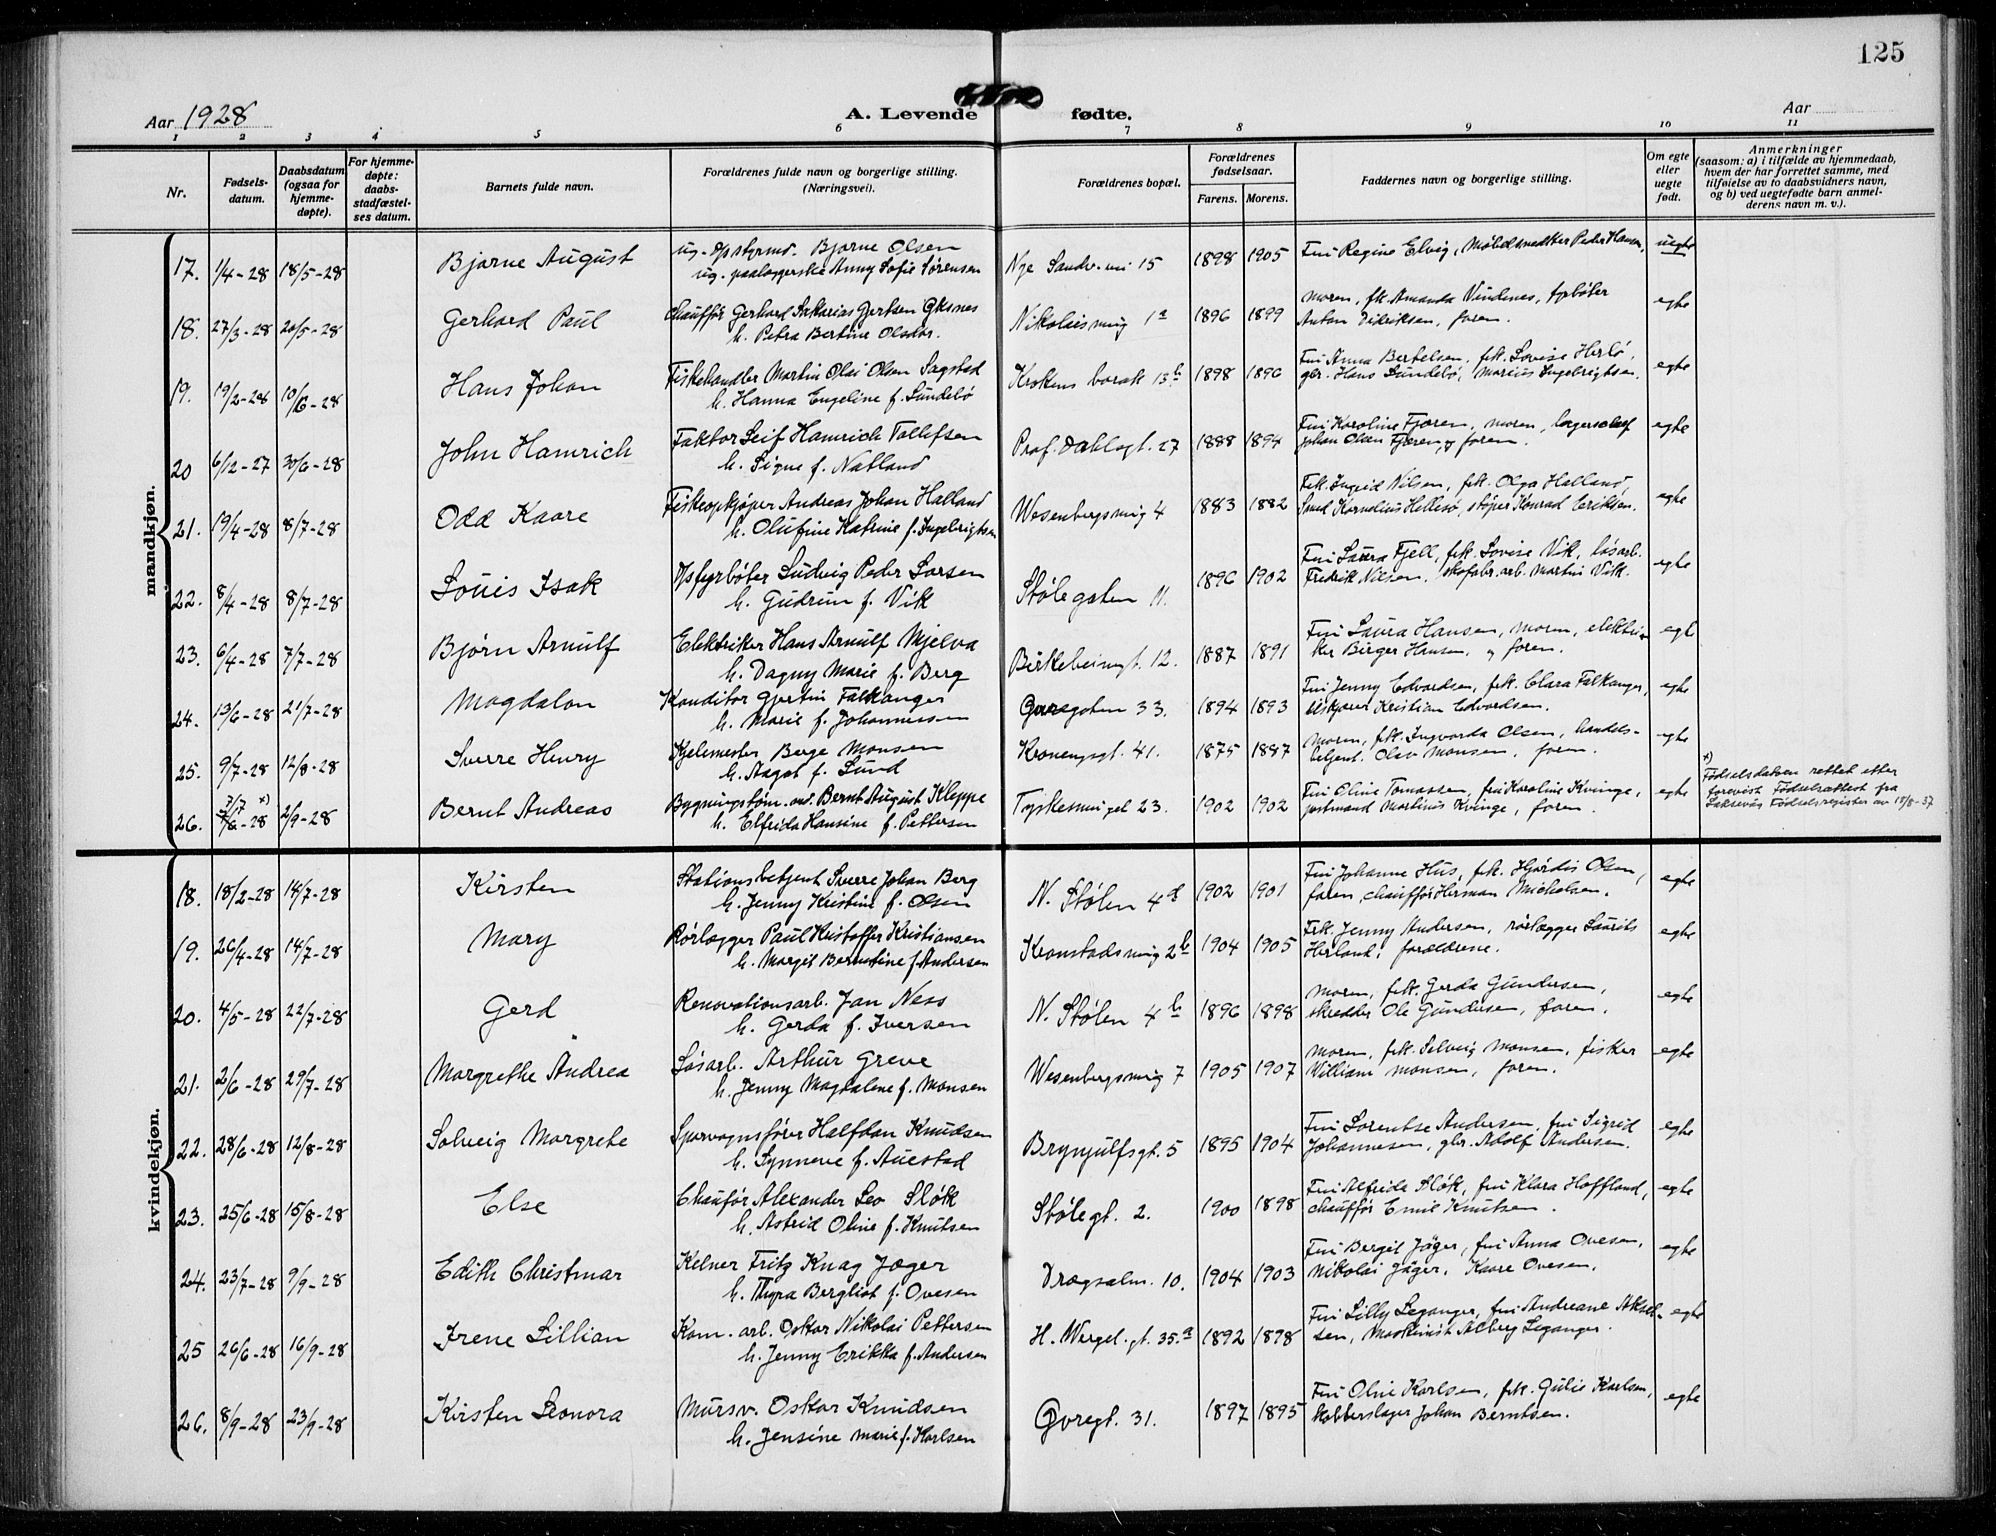 125
Aar 1928
A. Levende fødte.
Aar
1 2 3 4 5 6 7 8 9 10 11
Nr.
Fødsels-datum.
Daabsdatum (ogsaa for hjemme-døpte).
For hjemme-døpte: daabs-stadfæstel-ses datum.
Barnets fulde navn.
Forældrenes fulde navn og borgerlige stilling. (Næringsvei).
Forældrenes bopæl.
Forældrenes fødselsaar.
Farens. Morens.
Faddernes navn og borgerlige stilling.
Om egte eller uegte født.
Anmerkninger (saasom: a) i tilfælde av hjemmedaab, hvem der har forrettet samme, med tilføielse av to daabsvidners navn, og b) ved uegtefødte barn anmel-derens navn m. v.).
mandkjøn.
17. 1/4-28 18/5-28 Bjarne August ug. Bjarne Olsen Nye Sandv.vei 15 1898 1905 Fru Regine Elvig, Peder Hansen, uegte
ug. paaleggerske Anny Sofie Sørensen
18. 27/3-28 20/5-28 Gerhard Paul Chauffør Gerhard Sakarias Gjertsen Oksnes Nikolaismug 1a 1896 1899 moren, frk. Amanda Vindenes, fyrbøter egte
h. Petra Bertine Olsdtr. Anton Didriksen, faren.
19. 19/2-28 10/6-28 Hans Johan Fiskehandler Martin Olai Olsen Sagstad Krokens barak 13b 1898 1896 Fru Anna Bertelsen, frk. Lovise Herlø, egte
h. Hanna Engeline f. Lundebø gbr. Hans Lundebø, Marius Ingebrigtsen.
20 6/12-27 30/6-28 John Hamrich Faktor Leif Hamrich Tollefsen Prof. Dahlsgt. 27 1888 1894 Fru Karoline Fjæren, moren, lagerchef egte
h. Signe f. Natland Johan Olsen Fjæren, og faren.
21. 19/4-28 8/7-28 Odd Kaare Fiskeopkjøper Andreas Johan Halland Wesenbergsmug 4 1883 1882 Frk. Ingrid Nilsen, frk. Olga Halland, egte
h. Olufine Katrine f. Ingebrigtsen Smed Kornelius Hellesø, støper Konrad Eriksen.
22. 8/4-28 8/7-28 Louis Isak Fyrbøter Ludvig Peder Larsen Stølegaten 11. 1896 1902 Fru Laura Fjell, frk. Lovise Vik, løsarb. egte
h. Gudrun f. Vik Fredrik Nilsen, skofabr. arb. Martin Vik.
23. 6/4-28 7/7-28 Bjørn Arnulf Elektriker Hans Arnulf Mjelva Birkebeinergt. 12. 1887 1891 Fru Laura Hansen, moren, elektri- egte
h. Dagny Marie f. Berg ker Birger Hansen, og faren.
24. 13/6-28 21/7-28 Magdalon Konditor Gjertin Falkanger Øvregaten 33. 1894 1893 Fru Jenny Edvardsen, frk. Clara Falkanger, egte
h. Marie f. Johannessen Kristian Edvardsen.
25. 9/7-28 12/8-28 Sverre Henry Kjelemester Berge Monsen Kroneng­sgt. 41. 1875 1887 moren, frk. Ingvorda Olsen, handels- egte
h. Aagot f. Lund betjent. Olav Monsen, faren.
26. 7/7 x) 7/6-28 2/9-28 Bernt Andreas Bygningstøm. Bernt August Kleppe Tyskesmuget 23. 1902 1902 Fru Oline Tomassen, fru Karoline Kvinge, egte
h. Elfrida Hansine f. Pettersen postmand Martinus Kvinge, faren.
x) Fødselsdatoen rettet efter
forevist Fødselsattest fra
Laksevåg Fødselsregister av 18/8-37
kvindekjøn.
18. 18/2-28 14/7-28 Kirsten Stationsbetjent Sverre Johan Berg N. Stølen 4 1902 1901 Fru Johanne Hus, frk. Hjørdis Olsen, egte
h. Jenny Kristine f. Olsen faren, chauffør Herman Mickelsen.
19. 26/4-28 14/7-28 Mary Rørlegger Paul Kristoffer Kristiansen Kronstadsmug 2b 1904 1905 Frk. Jenny Andersen, rørlægger Laurits egte
h. Margit Berntine f. Andersen Herland, forældrene.
20. 4/5-28 22/7-28 Gerd Renovationsarb. Jan Ness N. Stølen 4b 1896 1898 moren, frk. Gerda Gundersen, egte
h. Gerda f. Iversen skredder Ole Gundersen, faren.
21. 2/6-28 29/7-28 Margrethe Andrea Løsarb. Arthur Greve Wesenbergsmug 7 1905 1907 moren, frk. Solveig Monsen, fisker egte
h. Jenny Magdalene f. Monsen William Monsen, faren.
22. 28/6-28 12/8-28 Solveig Margrete Sporvognsfører Halfdan Knudsen Brynjulfsgt. 5 1895 1904 Fru Lorentse Andersen, fru Sigrid egte
h. Synneve f. Auestad Johannesen, gbr. Adolf Andersen.
23. 25/6-28 15/8-28 Else Chaufør Alexander Leo Sløk Stølegt. 2. 1900 1898 Fru Alfrida Sløk, fru Klara Hoffland, egte
h. Astrid Oline f. Knutsen chauffør Emil Knutsen.
24. 23/7-28 9/9-28 Edith Christmar Kelner Fritz Knag Jæger Drægsalm. 10. 1904 1903 Fru Bergit Jæger, fru Anna Ovesen, egte
h. Thyra Bergliot f. Ovesen Nikolai Jäger, Kaare Ovesen.
25 26/6-28 16/9-28 Irene Lillian Kom. arb. Oskar Nikolai Pettersen H. Wergel. gt. 35.a 1892 1898 Fru Lilly Leganger, fru Andreane Aksel- egte
h. Jenny Erikka f. Andersen sen, Maskinist Alberg Leganger.
26. 8/9-28 23/9-28 Kirsten Leonora Mursv. Oskar Knudsen Øvregt. 31. 1897 1895 Fru Oline Karlsen, frk. Gulie Karlsen, egte
h. Jensine Marie f. Karlsen kobberslager Johan Berntsen.